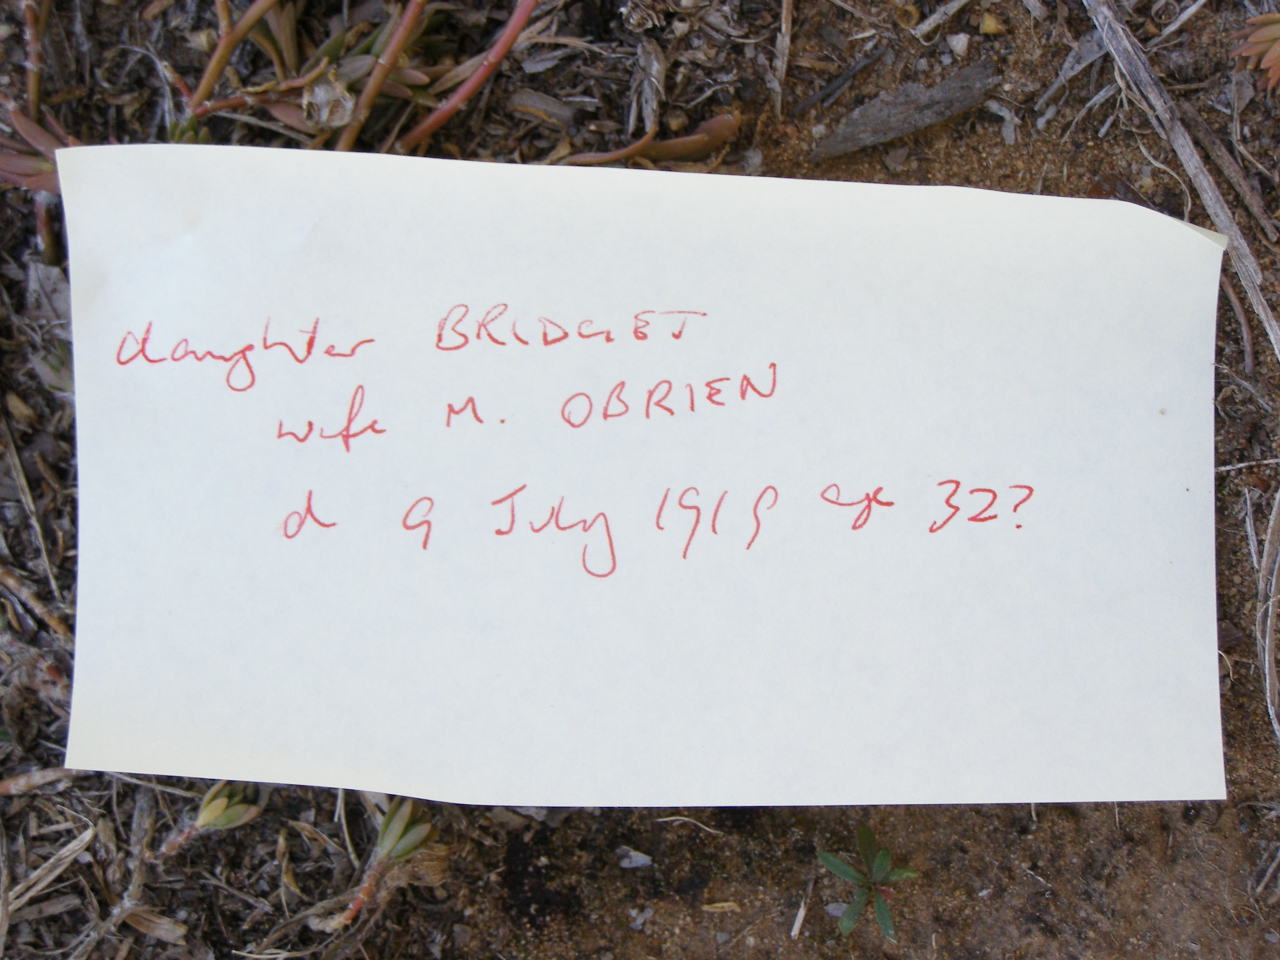 daughter BRIDGET
wife M. OBRIEN
d 9 July 1919 age 32?